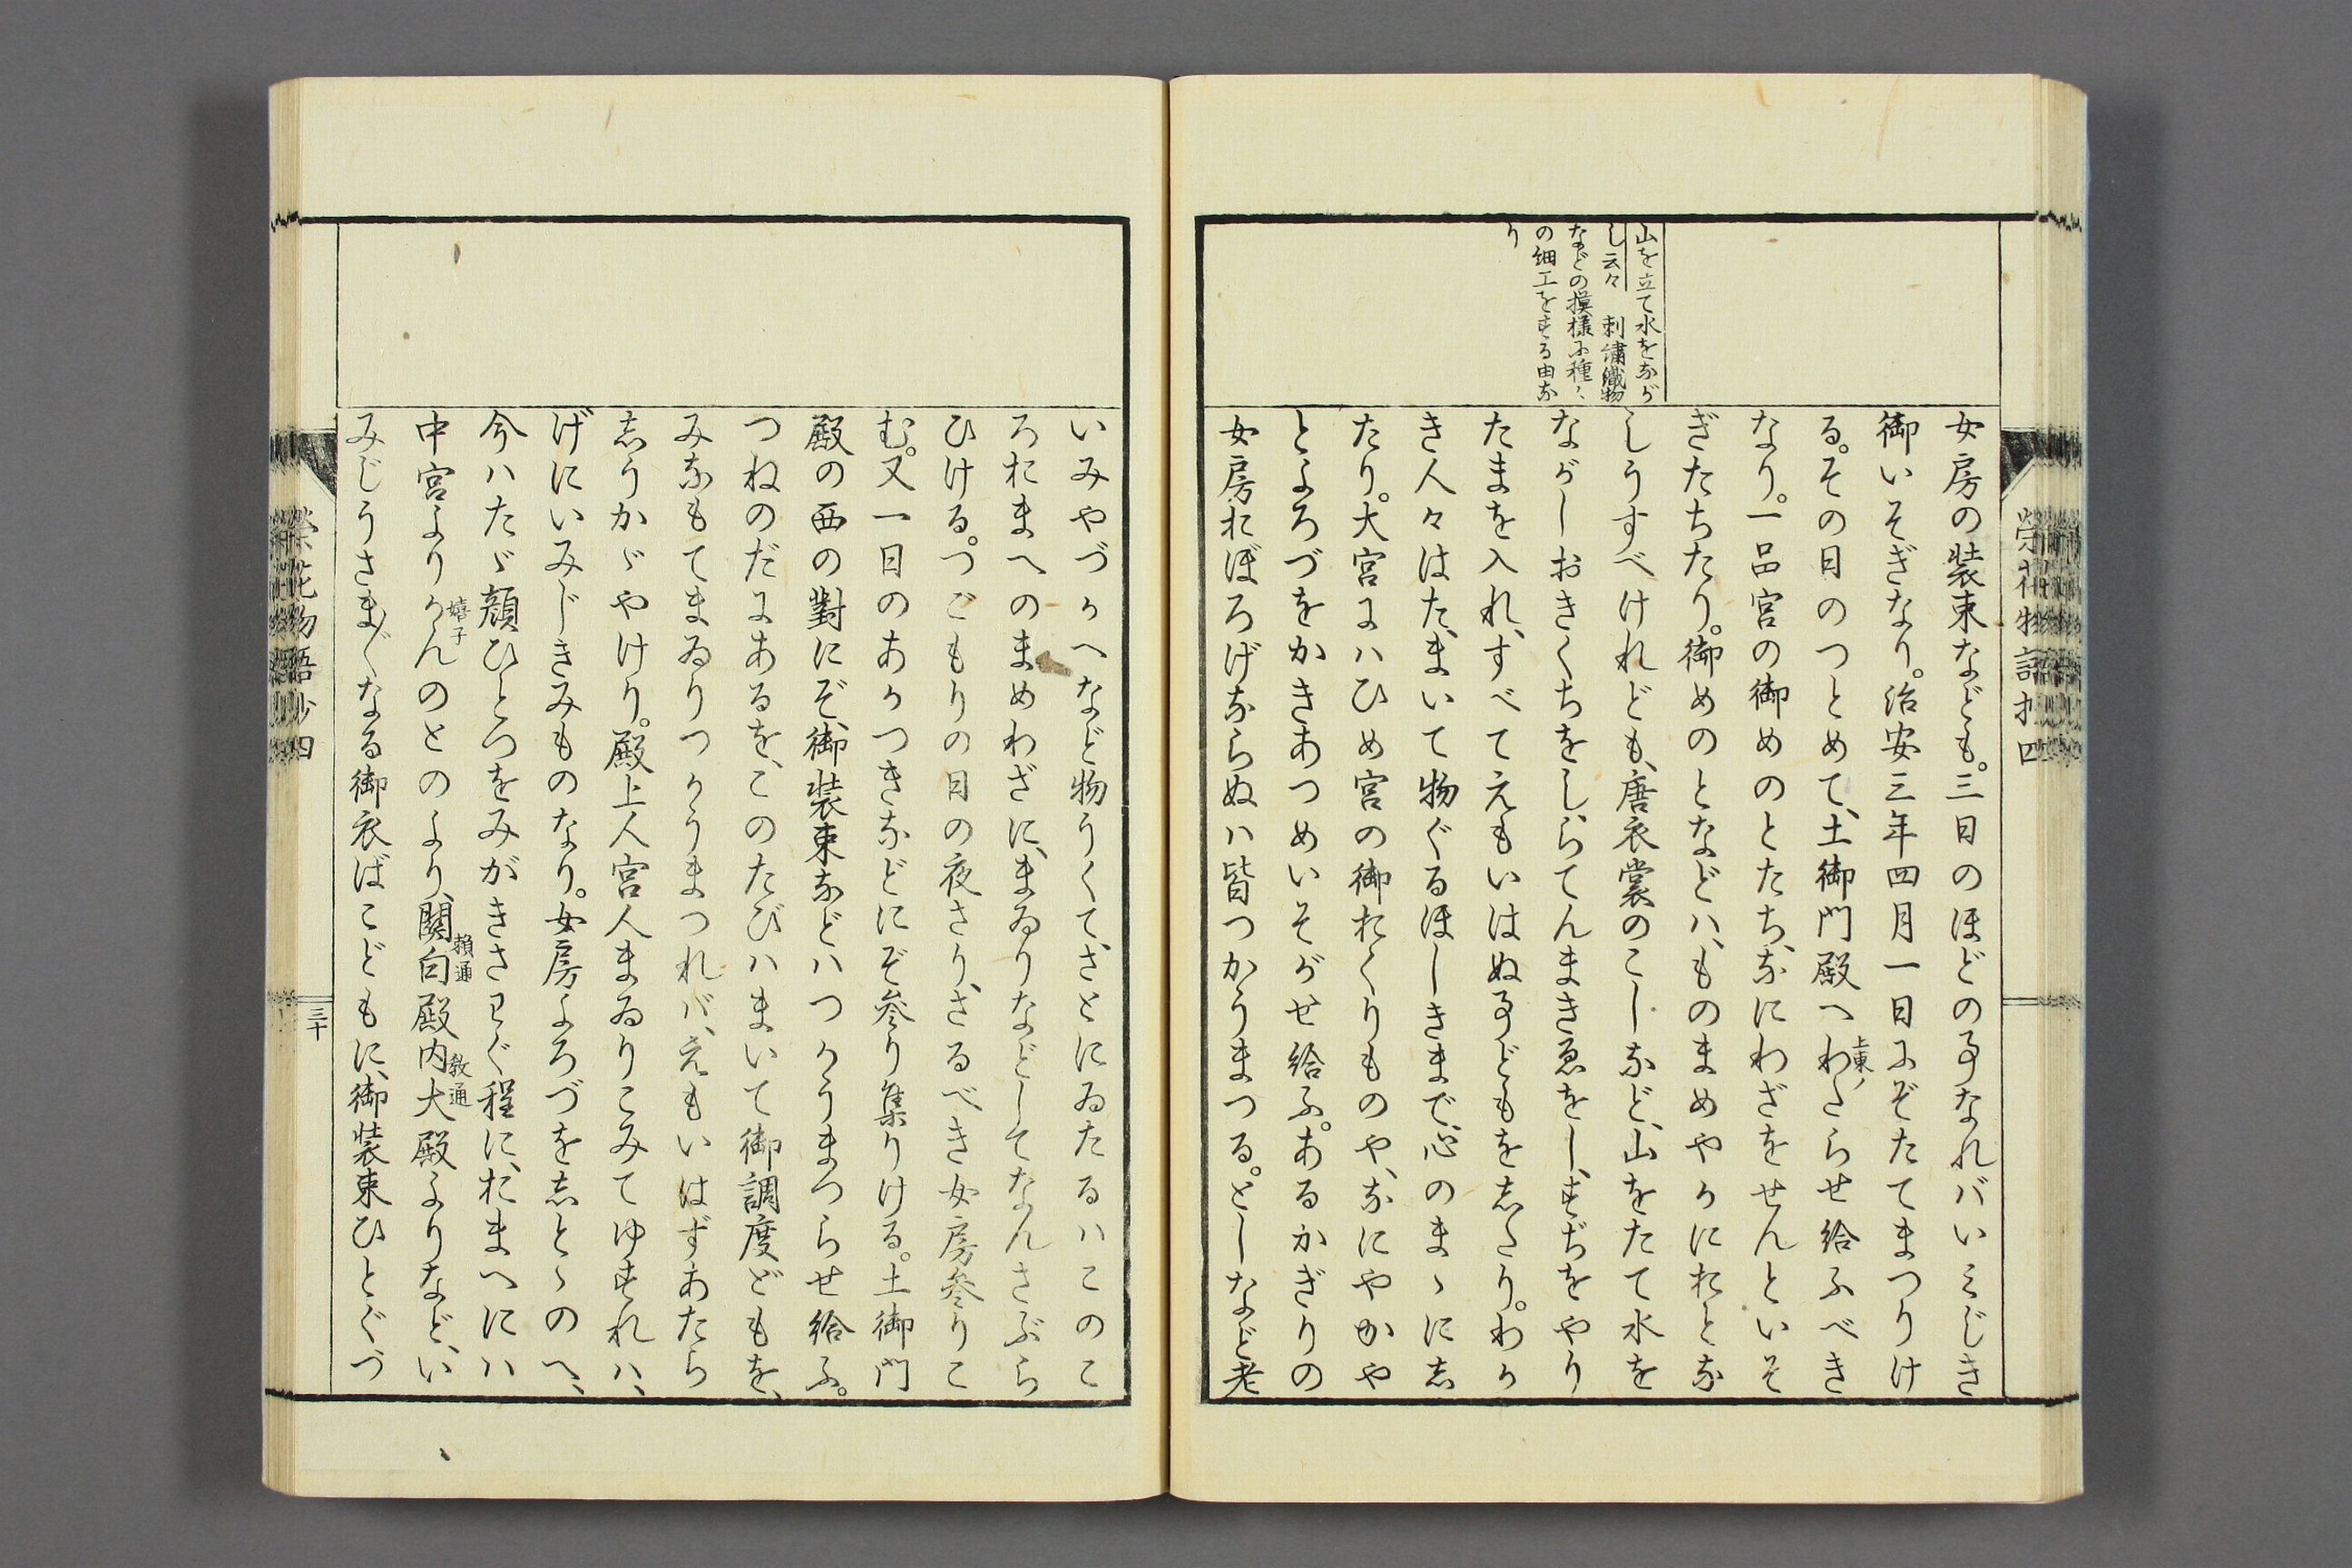 榮花物語抄四
山を立て水をなが
し云々 刺繍織物
などの摸様に種々
の細工をする由な
り
女房の装束なども。三日のほどの事なればいみじき
御いそぎなり。治安三年四月一日にぞたてまつりけ
る。その日のつとめて、土御門殿へわたらせ給ふべき
上東ノ
なり。一品宮の御めのとたち、なにわざをせんといそ
ぎたちたり。御めのとなどハ、ものまめやかにおとな
しうすべけれども、唐衣裳のこしなど、山をたて水を
ながしおきくちをし、らてんまきゑをし、すぢをやり
たまを入れ、すべてえもいはぬ事どもをしたり。わか
き人々はた、まいて物ぐるほしきまで、心のまゝにし
たり。大宮にハひめ宮の御おくりものや、なにやかや
とよろづをかきあつめいそがせ給ふ。あるかぎりの
女房おぼろげならぬハ皆つかうまつる。としなど老
いみやづかへなど物うくて、さとにゐたるハこのこ
ろおまへのまめわざに、まゐりなどしてなんさぶら
ひける。つごもりの日の夜さり、さるべき女房參りこ
む。又一日のあかつきなどにぞ參り集りける。土御門
殿の西の對にぞ、御装束などハつかうまつらせ給ふ。
つねのだにあるを、このたびハまいて御調度どもを、
みなもてまゐりつかうまつれバ、えもいはずあたら
しうかゞやけり。殿上人宮人まゐりこみてゆすれハ、
げにいみじきみものなり。女房よろづをしとゝのへ、
今ハたゞ顔ひとつをみがきさわぐ程に、おまへにハ
中宮よりかんのとのより、關白殿内大殿よりなど、い
嬉子
頼通
教通
みじうさま〴〵なる御衣ばこどもに、御装束ひとぐづ
榮花物語抄四
三十